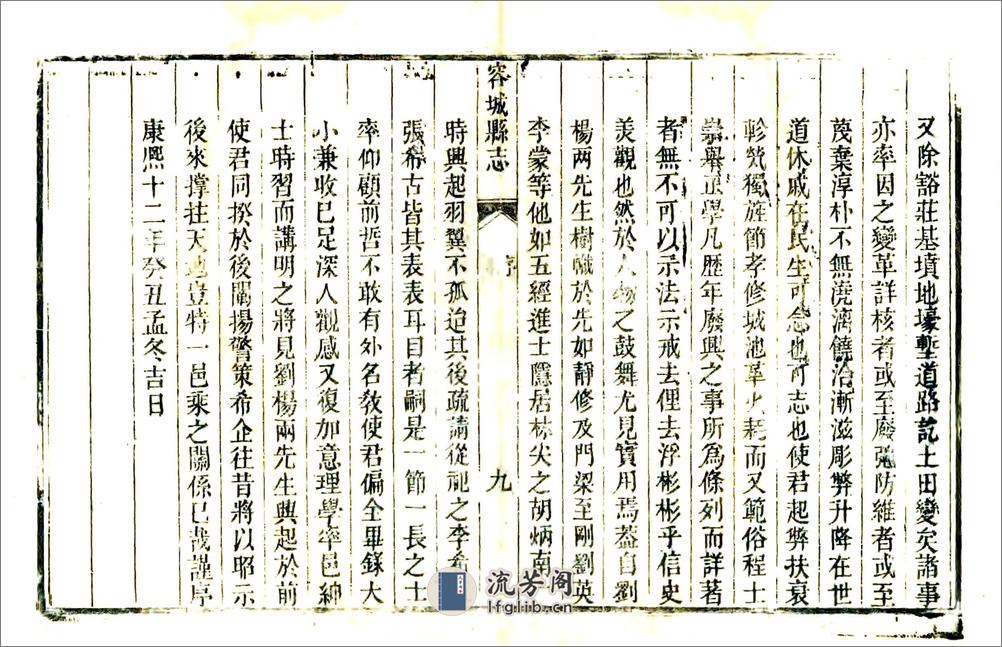 又除豁莊基墳地壕塹道路訖土田變矣諸事
亦率因之變革詳核者或至廢弛防維者或至
蔑棄淳朴不無澆漓饒洽漸滋彫弊升降在世
道休戚在民生可念也可志也使君起弊扶衰
軫煢獨旌節孝修城池革火耗而又範俗程士
舉正學凡歷年廢興之事所為條列而詳著
者無不可以示法示戒去俚去浮彬彬乎信史
美觀也然於人物之鼓舞尤見實用焉蓋自劉
楊两先生樹幟於先如靜修及門梁至剛劉英
李蒙等他如五經進士隱居林尖之胡炳南
容城縣志
序
九
時興起羽翼不孤迨其後疏請從祀之李希
張希古皆其表表耳目者嗣是一節一長之士
率仰顧前哲不敢有外名教使君偏全畢錄大
小兼收已足深人觀感又復加意理學率邑紳
士時習而講明之將見劉楊兩先生興起於前
使君同揆於後闡揚警策希企往昔將以昭示
後來撐拄天地豈特一邑乘之關係已哉謹序
康熙十二年癸丑孟冬吉日
流芳阁
lfglib.cn